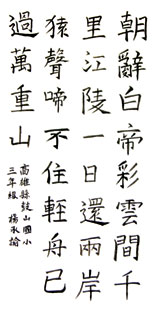 朝辭白帝彩雲間千
里江陵一日還兩岸
猿聲啼不住輕舟已
過萬重山
高雄縣鼓山國小
三年級 楊承諭